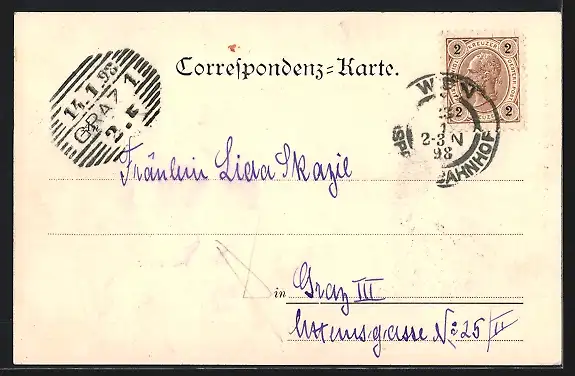 Correspondenz=Karte.
2 KREUZER 2
2 2
WIEN
2-3 N
98
BAHNHOF
14.1.98
GRAZ 1
2-5
Fräulein Lida Skazil
in Graz III
Attemsgasse No 25/II